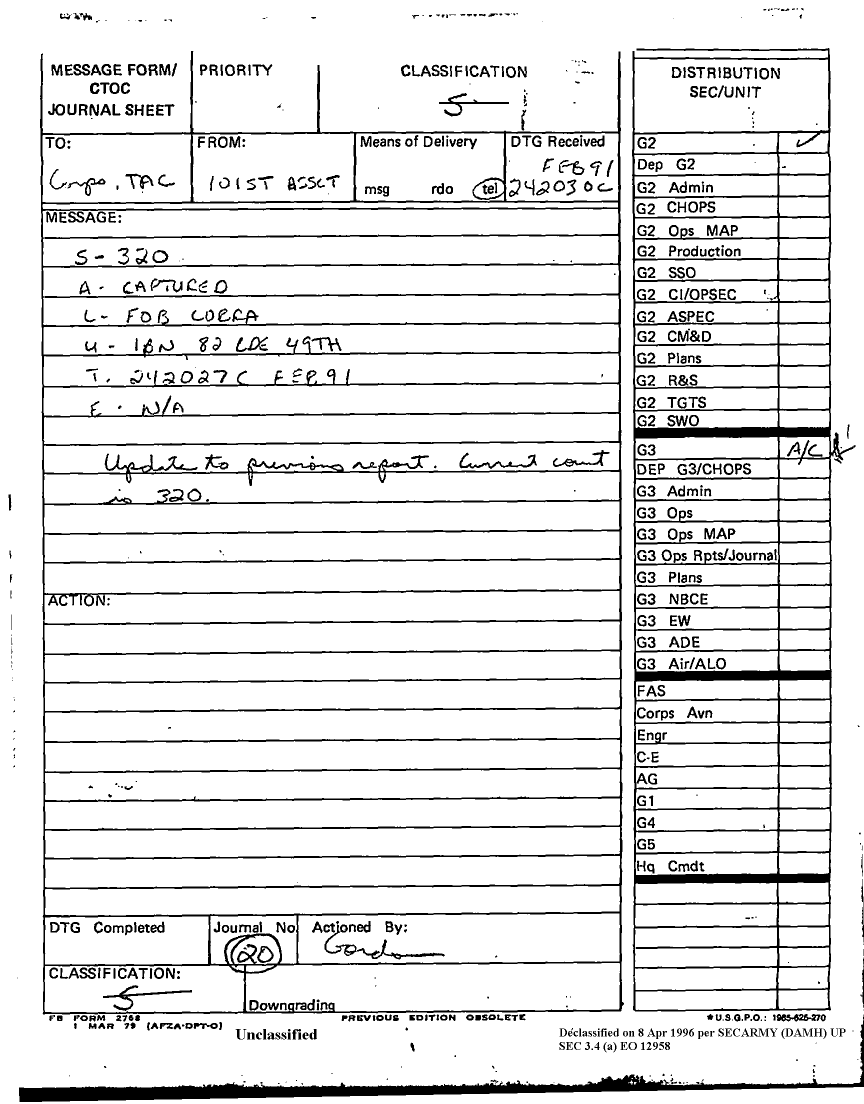 MESSAGE FORM/
CTOC
JOURNAL SHEET
PRIORITY
CLASSIFICATION
S
TO:
Corps, TAC
FROM:
101ST ASSLT
Means of Delivery
msg rdo tel
DTG Received
FEB 91
242030C
MESSAGE:
S - 320
A - CAPTURED
L - FOB COBRA
U - 1BN, 82 BDE 49TH
T. 242027C FEB 91
E - N/A
Update to previous report. Current count
is 320.
ACTION:
DTG Completed
Journal No
20
Actioned By:
Gordon
CLASSIFICATION:
S
Downgrading
FB FORM 2768
1 MAR 79 (AFZA-DPT-O)
PREVIOUS EDITION OBSOLETE
DISTRIBUTION
SEC/UNIT
G2
Dep G2
G2 Admin
G2 CHOPS
G2 Ops MAP
G2 Production
G2 SSO
G2 CI/OPSEC
G2 ASPEC
G2 CM&D
G2 Plans
G2 R&S
G2 TGTS
G2 SWO
G3 A/C
DEP G3/CHOPS
G3 Admin
G3 Ops
G3 Ops MAP
G3 Ops Rpts/Journal
G3 Plans
G3 NBCE
G3 EW
G3 ADE
G3 Air/ALO
FAS
Corps Avn
Engr
C-E
AG
G1
G4
G5
Hq Cmdt
* U.S.G.P.O.: 1985-625-270
Unclassified
Declassified on 8 Apr 1996 per SECARMY (DAMH) UP
SEC 3.4 (a) EO 12958